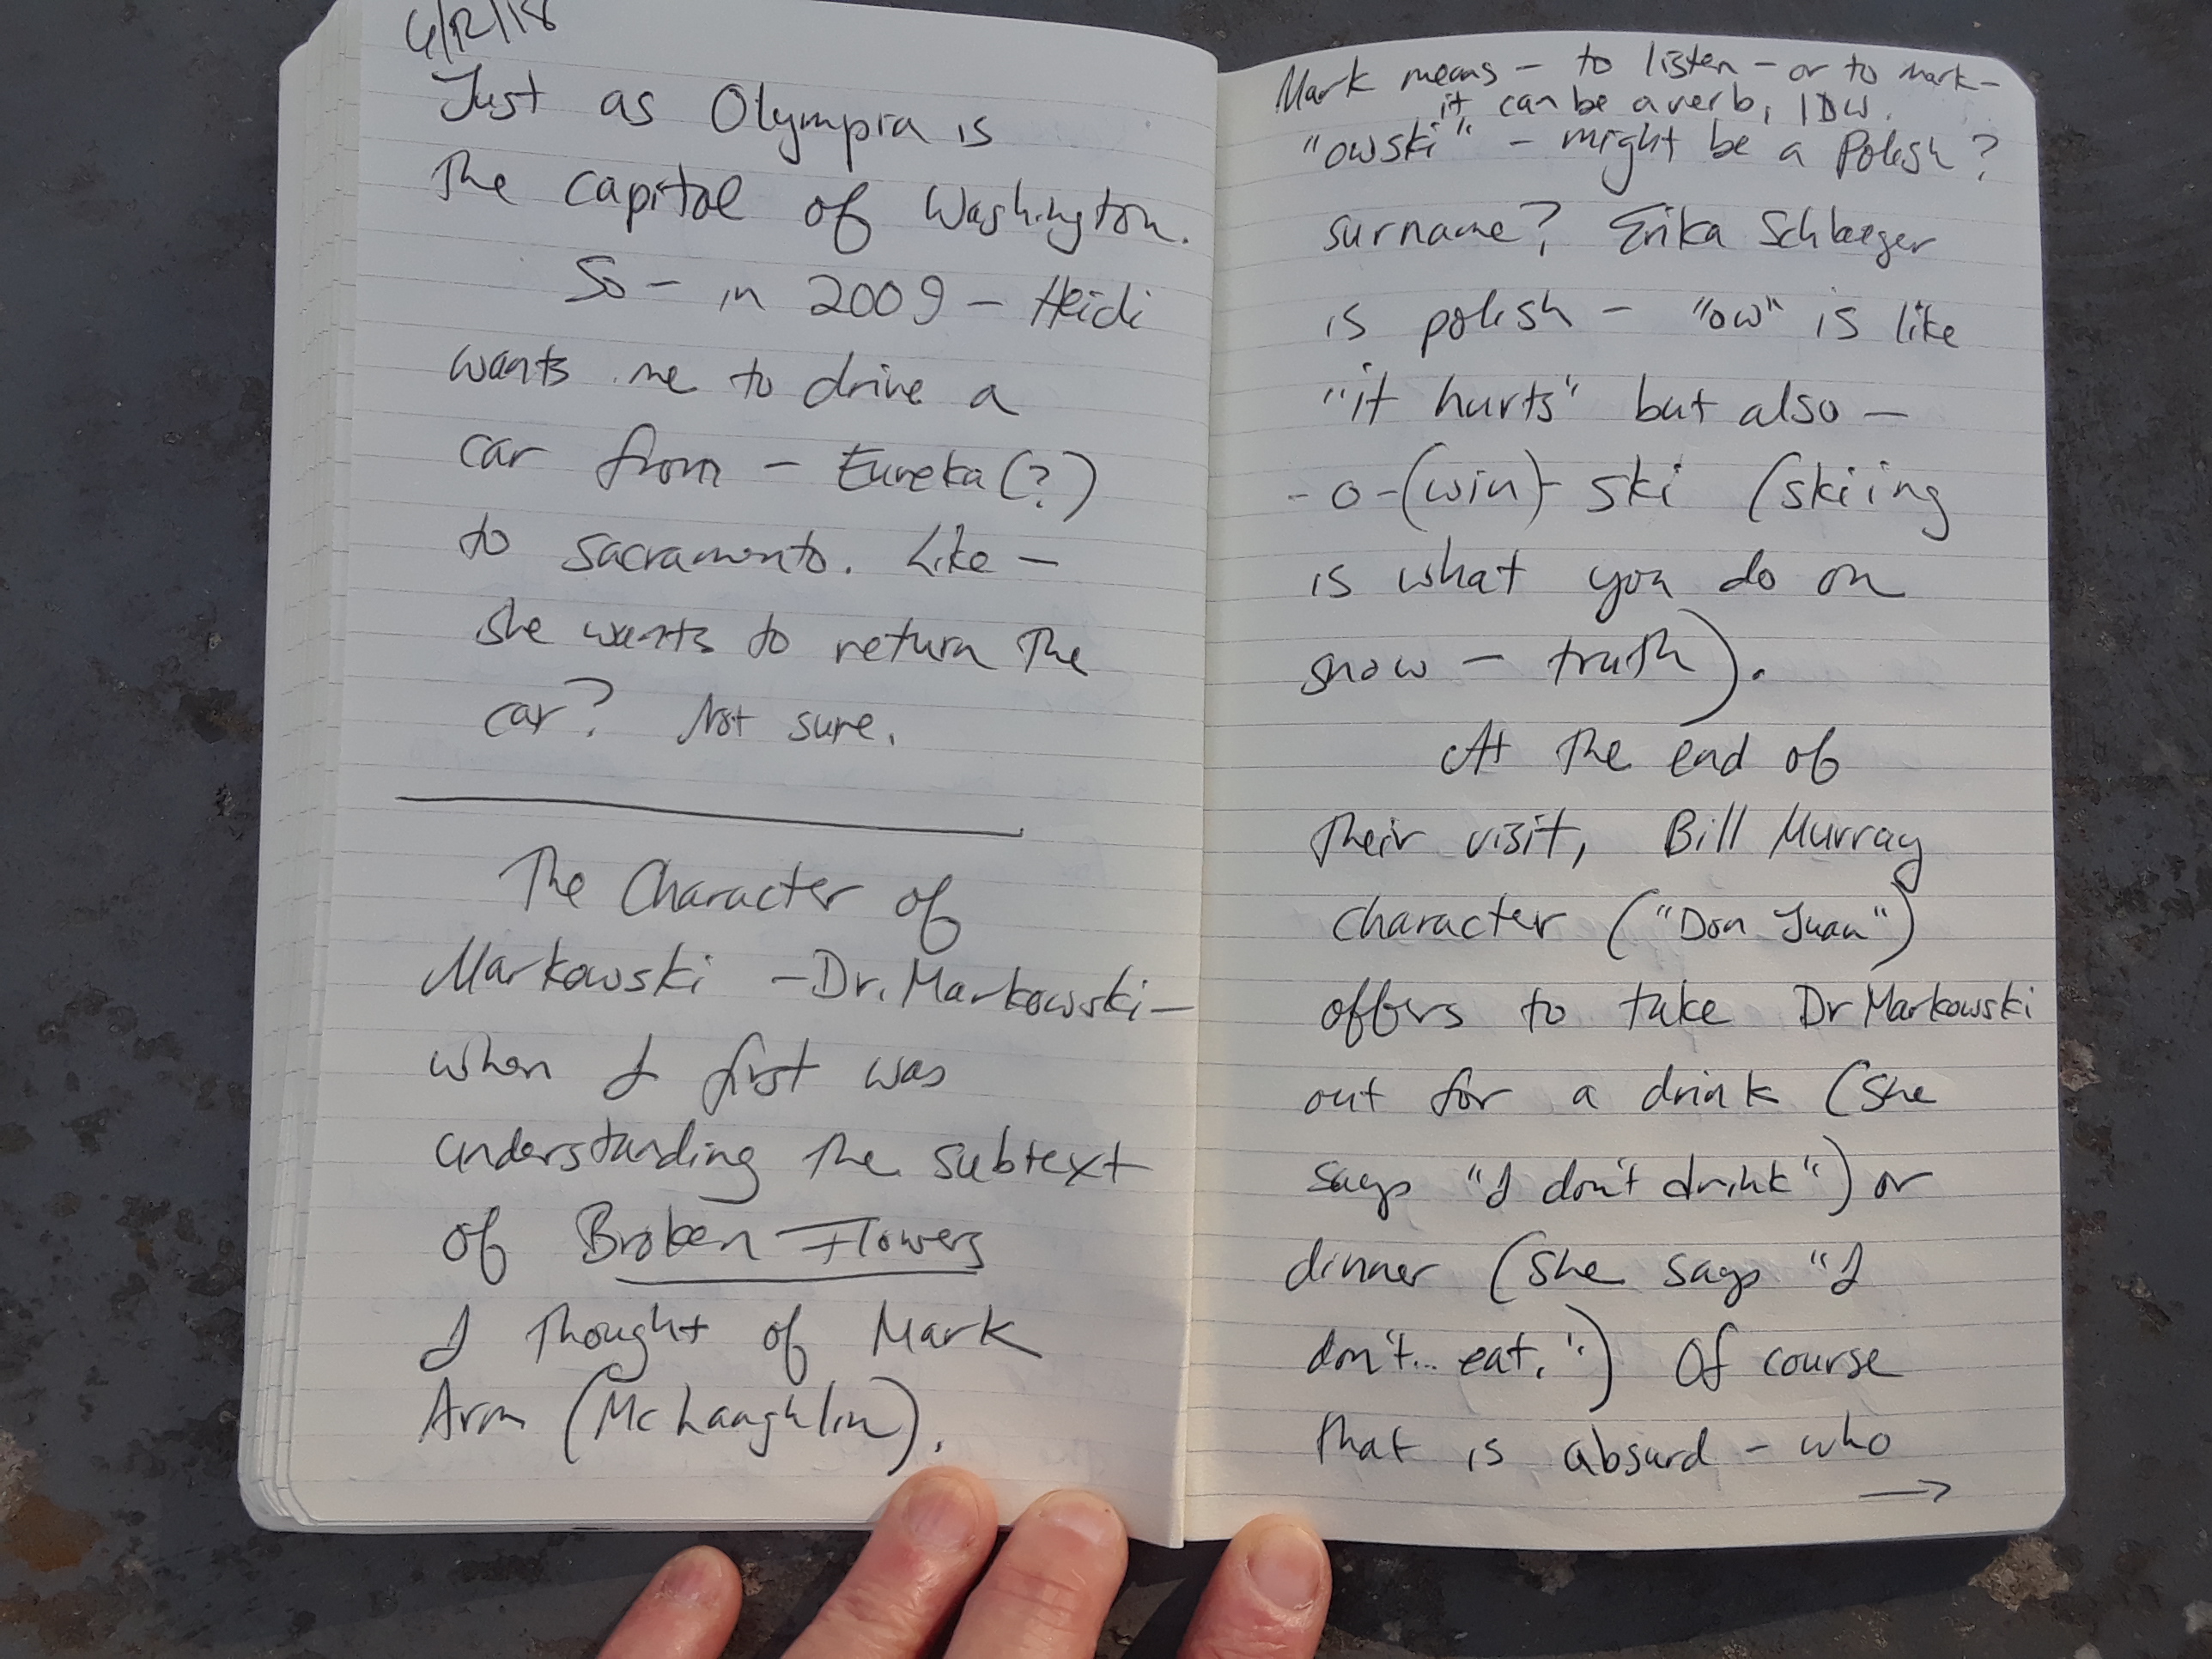 6/12/18
Just as Olympia is
the capitol of Washington.
So – in 2009 – Heidi
wants me to drive a
car from – Eureka(?)
to Sacramento. Like –
she wants to return the
car? Not sure.
The Character of
Markowski – Dr. Markowski –
when I first was
understanding the subtext
of Broken Flowers
I thought of Mark
Arm (McLaughlin).
Mark means – to listen – or to mark –
it can be a verb, IDW.
"owski" – might be a Polish?
surname? Erika
is polish – "ow" is like
"it hurts" but also –
- o -(win)- ski (skiing
is what you do on
snow – truth).
At the end of
their visit, Bill Murray
character ("Don Juan")
offers to take Dr Markowski
out for a drink (she
says "I don't drink") or
dinner (she says "I
don't... eat.") Of course
that is absurd – who
→